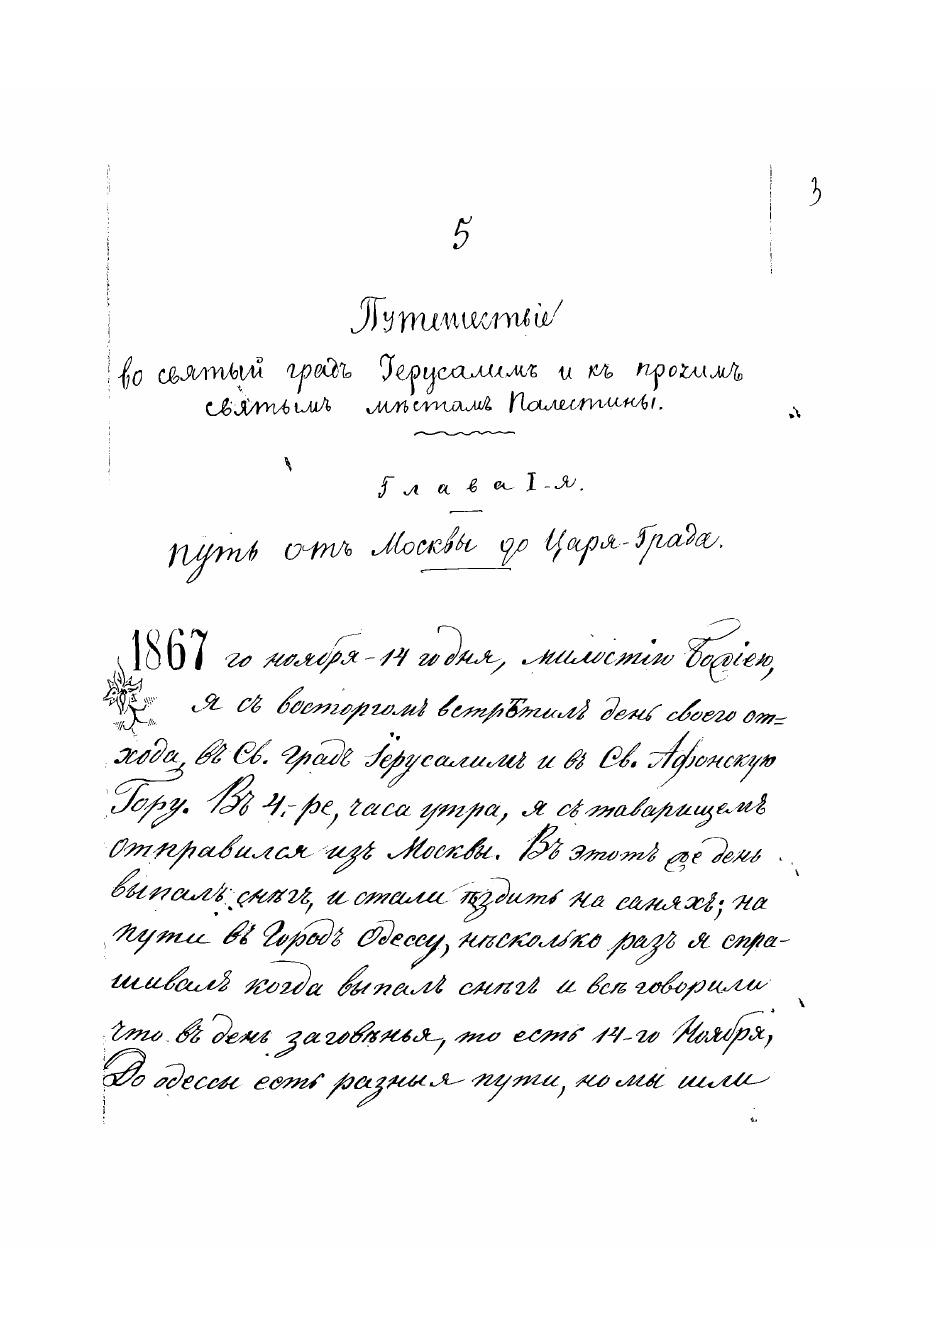 3
5
Путешествіе
во святый градъ Іерусалимъ и къ прочимъ
святымъ мѣстамъ Палестины.
Глава I-я.
Путь отъ Москвы до Царя-Града.
1867 го ноября-14 го дня, милостію Божіею,
я съ восторгомъ встрѣтилъ день своего от=
хода, въ Св. градъ Іерусалимъ и въ Св. Афонскую
Гору. Въ 4,-ре, часа утра, я съ таварищемъ
отправился изъ Москвы. Въ этотъ же день
выпалъ снѣгъ, и стали ѣздить на саняхъ; на
пути въ Городъ Одессу, нѣсколько разъ я спра-
шивалъ когда выпалъ снѣгъ и всѣ говорили
что въ день заговѣнья, то есть 14-го Ноября,
До одессы есть разныя пути, но мы шли